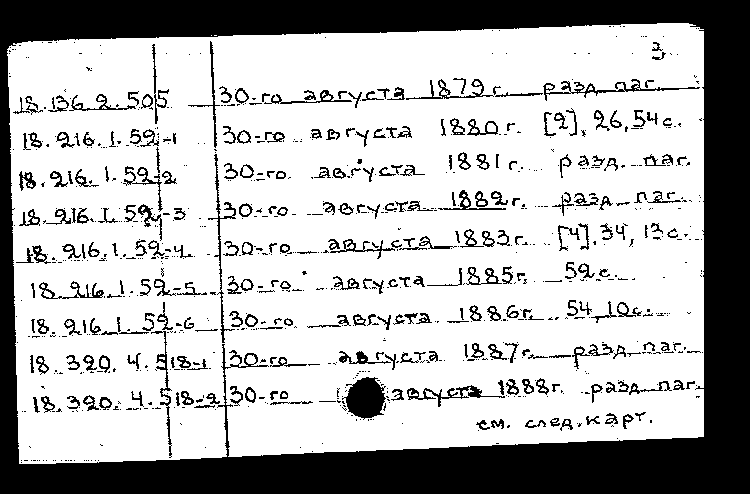 3
18.136.2.505 30-го августа 1879 г. разд. паг.
18.216.1.52-1 30-го августа 1880 г. [2], 26, 54 с.
18.216.1.52-2 30-го августа 1881 г. разд. паг.
18.216.1.52-3 30-го августа 1882 г. разд. паг.
18.216.1.52-4 30-го августа 1883 г. [4], 34, 13 с.
18.216.1.52-5 30-го августа 1885 г. 52 с.
18.216.1.52-6 30-го августа 1886 г. 54, 10 с.
18.320.4.518-1 30-го августа 1887 г. разд. паг.
18.320.4.518-2 30-го августа 1888 г. разд. паг.
см. след. карт.